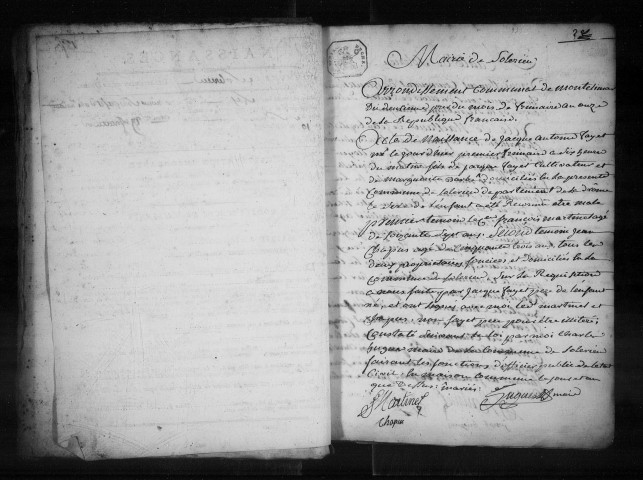 NAISSANCES.
Mairie de Solerieu
Arrondissement Communal de montelimar
du deuxieme jour du mois de frimaire an onze
de la Republique francaise.
Acte De Naissance de Jacque Antoine fayet
né le jour d'hier premier frimaire a six heures
du matin fils de Jacque fayet Cultivateur et
de marguerite domiciliés la presente
Commune de Solerieu departement de la drôme
le Sexe de l'enfant a été Reconnu etre male
premier temoin françois martinel agé
de soixante Sept ans. Second temoin jean
Chapus agé de Cinquante trois ans, tous les
deux proprietaires fonciers et domiciliés la
Commune de Solerieu, Sur la Requisition
a nous faite par Jacque fayet pere de l'enfant
né, et ont signés avec moi les martinel et
Chapus non fayet pere pour être illitéré,
Constaté Suivant la loi par moi Charle
hugues maire de la Commune de Solerieu
faisant les fonctions d'officier public de l'etat
Civil la maison Commune le jour et an
que dessus.
Martinel
hugues maire
Chapus